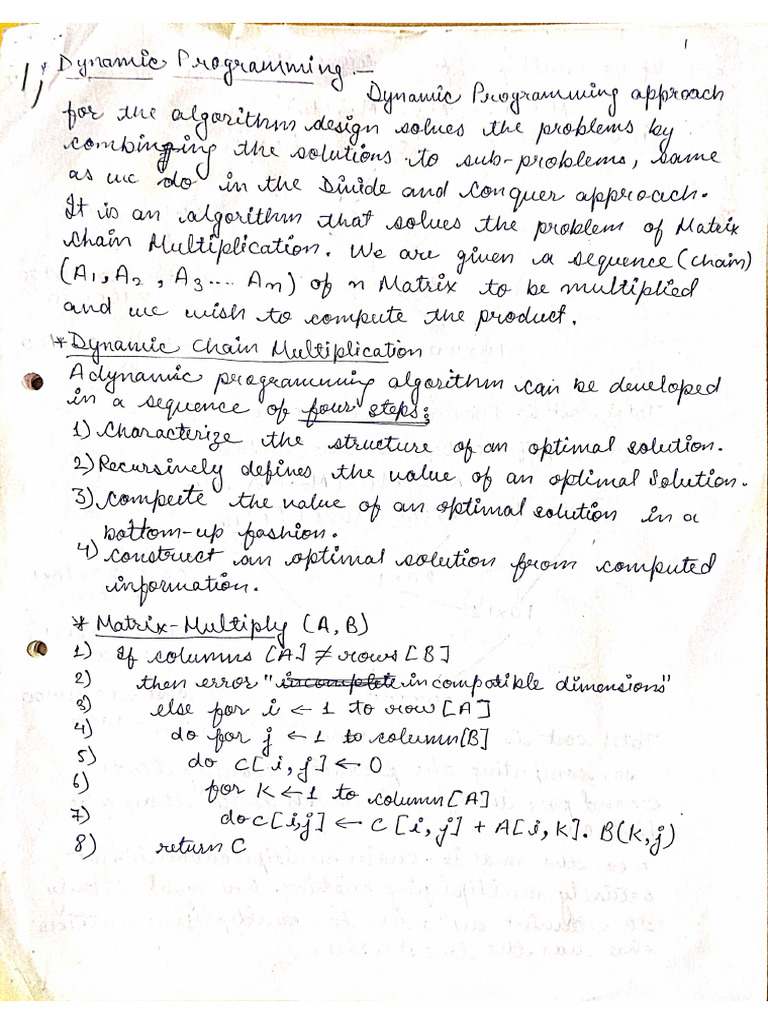 1
1) * Dynamic Programming –
Dynamic Programming approach
for the algorithm design solves the problems by
combinging the solutions to sub-problems, same
as we do in the Divide and Conquer approach.
It is an algorithm that solves the problem of Matrix
Chain Multiplication. We are given a sequence (chain)
(A1, A2, A3.... An) of n Matrix to be multiplied
and we wish to compute the product.
* Dynamic Chain Multiplication
A dynamic programming algorithm can be developed
in a sequence of four steps:
1) Characterize the structure of an optimal solution.
2) Recursively defines the value of an optimal solution.
3) Compute the value of an optimal solution in a
bottom-up fashion.
4) Construct an optimal solution from computed
information.
* Matrix-Multiply (A, B)
1) If columns [A] ≠ rows [B]
2) then error "incomplete incompatible dimensions"
3) else for i ← 1 to row [A]
4) do for j ← 1 to column [B]
5) do C[i, j] ← 0
6) for K ← 1 to column [A]
7) do C[i,j] ← C [i, j] + A[i, K]. B(K, j)
8) return C